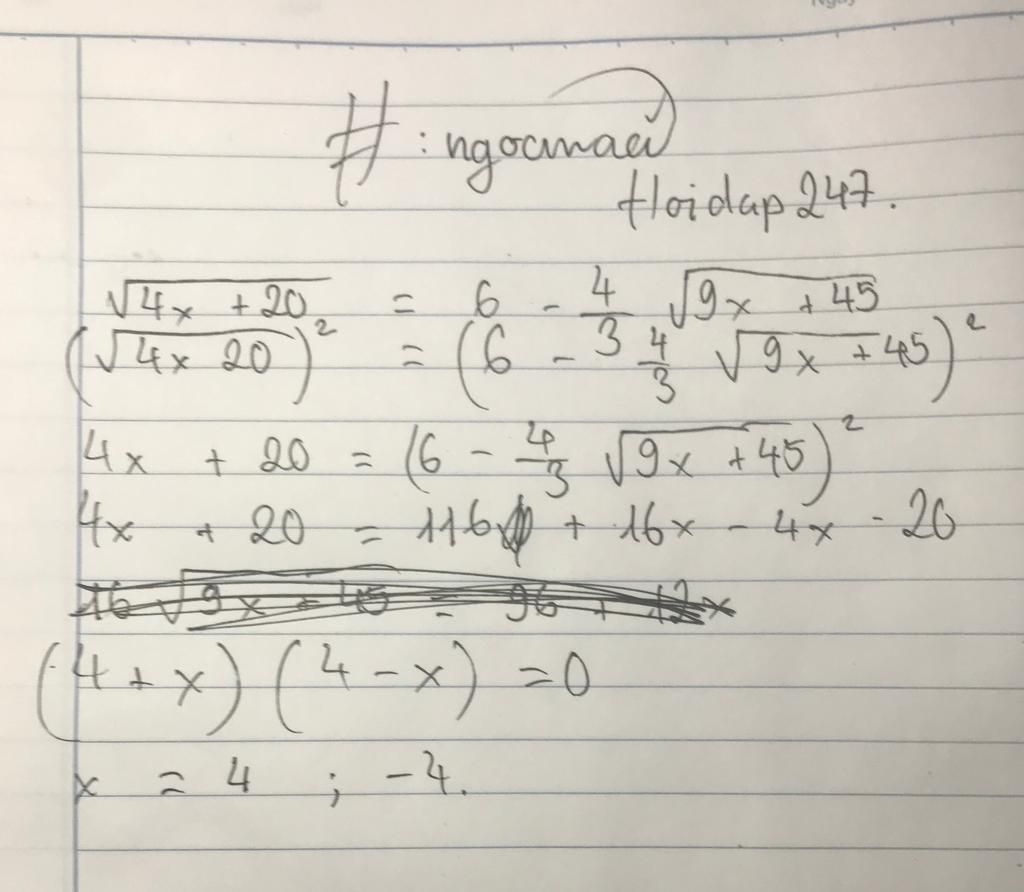 #: ngocmaei
Hoidap247.
√(4x + 20) = 6 - 4/3 √(9x + 45)
(√(4x 20))² = (6 - 4/3 √(9x + 45))²
4x + 20 = (6 - 4/3 √(9x + 45))²
4x + 20 = 116 + 16x - 4x - 20
16 √(9x + 45) = 96 + 12x
(4 + x) (4 - x) = 0
x = 4 ; -4.